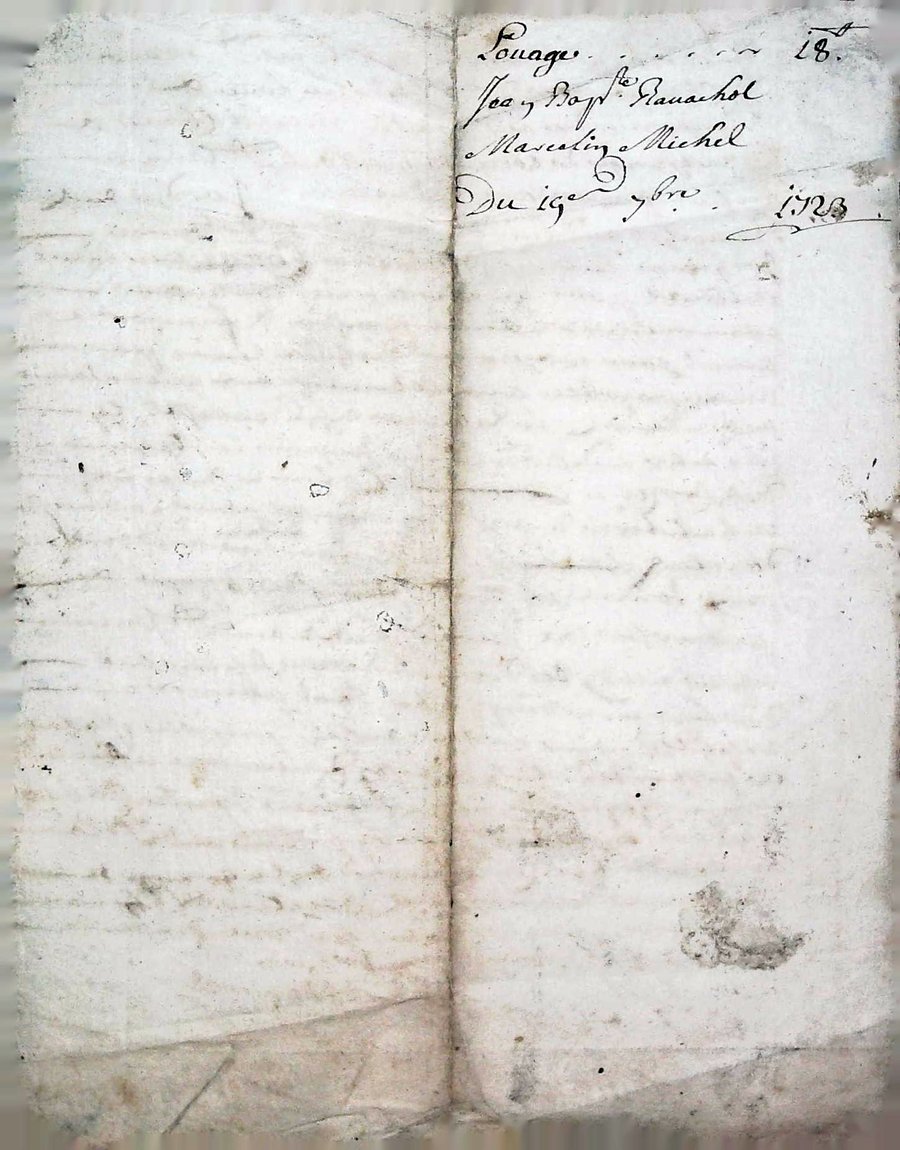 Louage . . . . . . . 18ᵗᵗ.
Jean Bapᵗᵉ. Ravachol
Marcelin Michel
Du 19ᵉ 7bre . 1723.